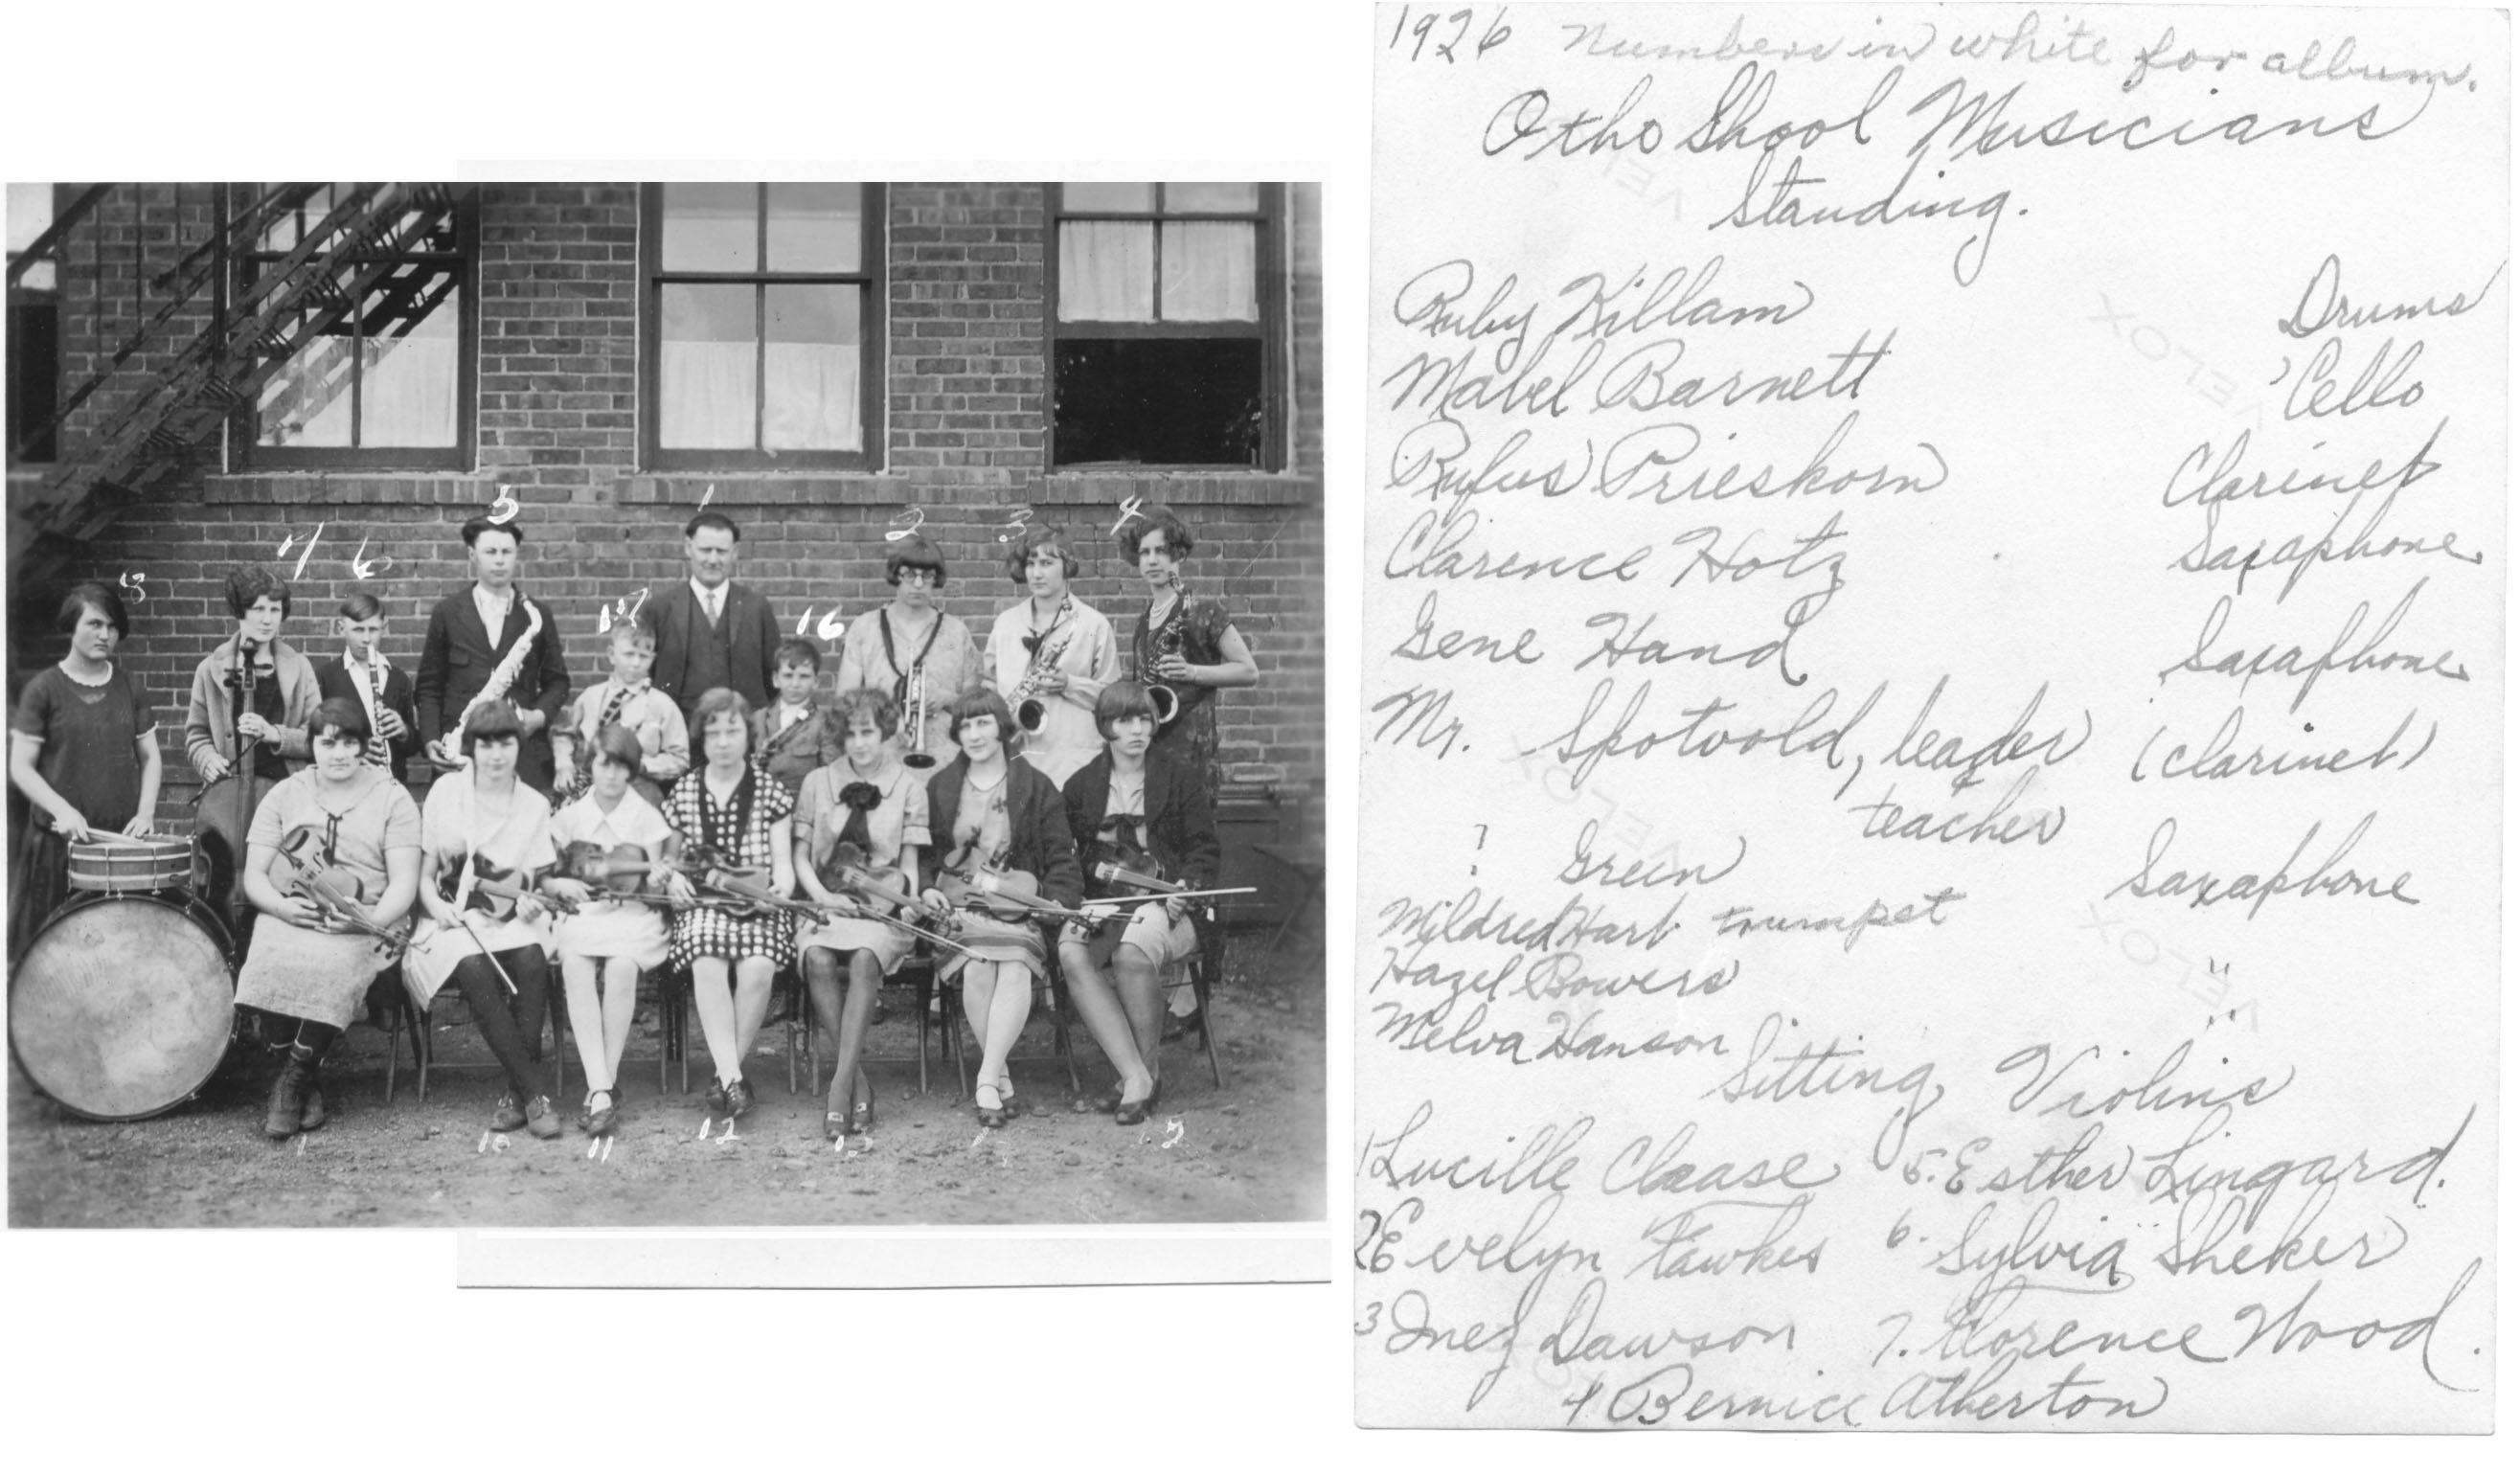 5
1
2
3
4
7
6
8
17
16
10
11
12
1926 Numbers in white for album.
Otho Shool Musicians
Standing.
Ruby Killam Drums
Mabel Barnett 'Cello
Rufus Prieskorn Clarinet
Clarence Hotz Saxaphone
Gene Hand Saxaphone
Mr. Spotvold, leader (clarinet)
& teacher
? Green Saxaphone
Mildred Hart trumpet
Hazel Bowers "
Melva Hanson "
Sitting, Violins
1 Lucille Claase 5. Esther Lingard.
2 Evelyn Fawkes 6. Sylvia Sheker
3 Inez Dawson 7. Florence Wood.
4 Bernice Atherton
VELOX
VELOX
VELOX
VELOX